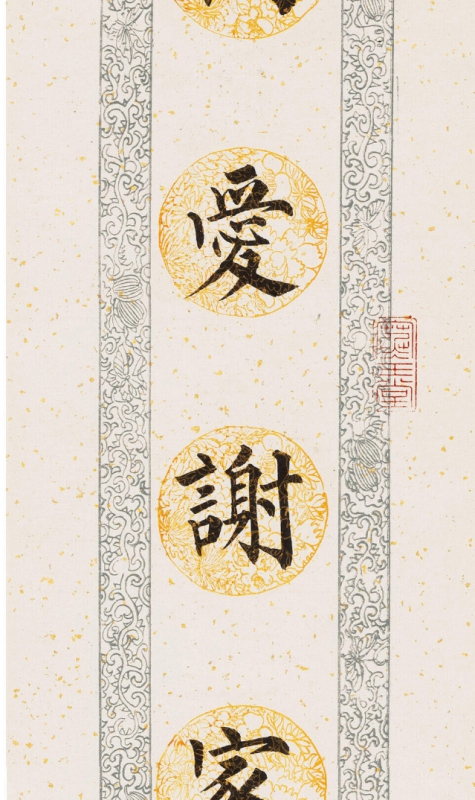 愛
謝
家